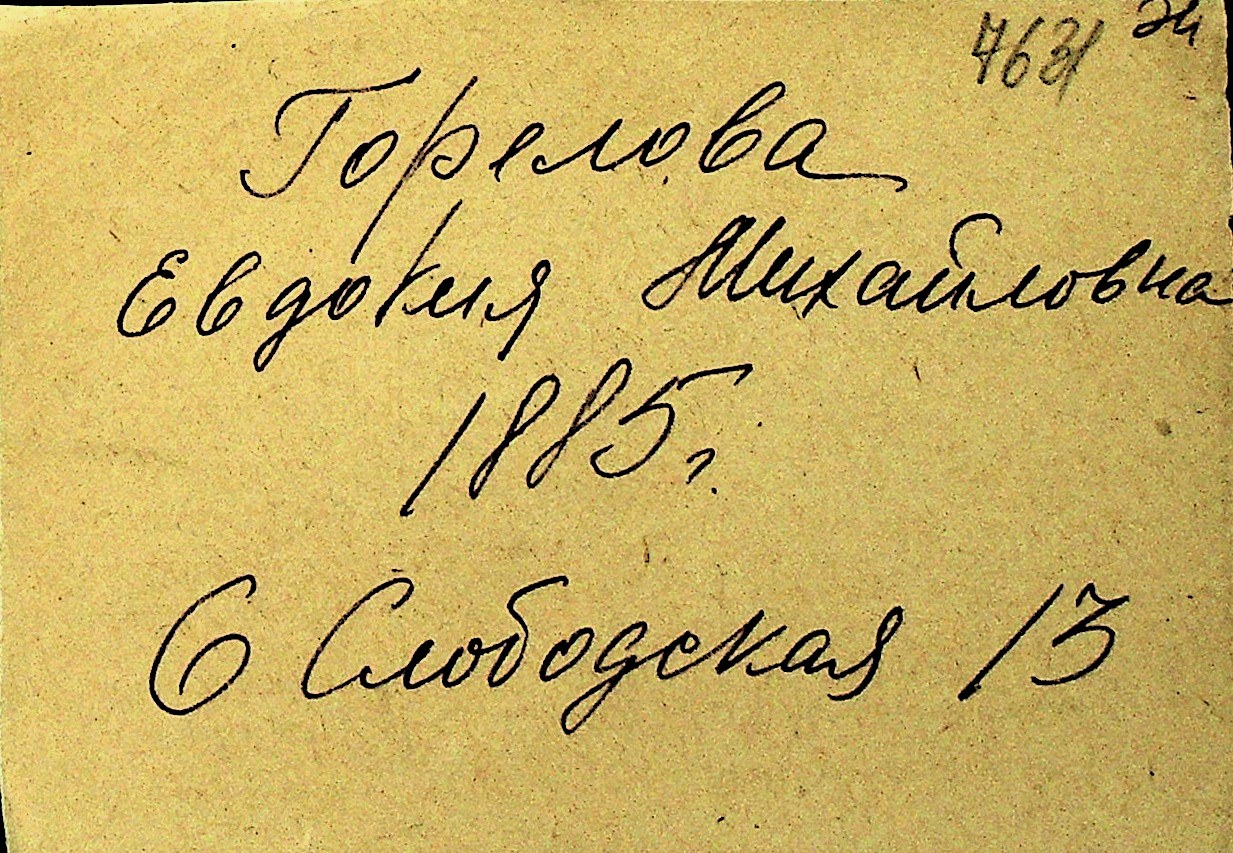 7631
Горелова
Евдокия Михайловна
1885 г.
6 Слободская 13